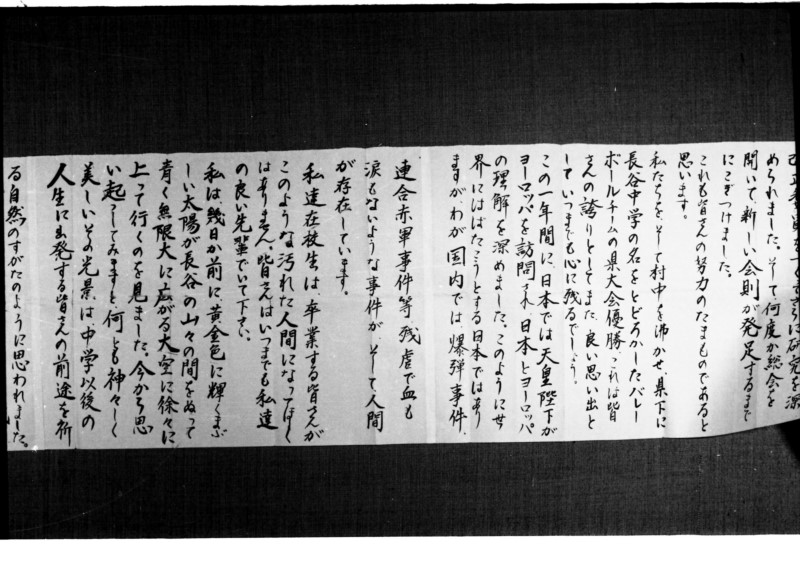 さらに研究を深
められました。そして、何度か総会を
開いて、新しい会則が発足するまで
にこぎつけました。
これも皆さんの努力のたまものであると
思います。
私たちを、そして村中を沸かせ、県下に
長谷中学の名をとどろかしたバレー
ボールチームの県大会優勝、これは皆
さんの誇りとしてまた、良い思い出と
していつまでも心に残るでしょう。
この一年間に、日本では天皇陛下が
ヨーロッパを訪問され、日本とヨーロッパ
の理解を深めました。このように世
界にはばたこうとする日本ではあり
ますが、わが国内では、爆弾事件、
連合赤軍事件等、残虐で血も
涙もないような事件が、そして人間
が存在しています。
私達在校生は、卒業する皆さんが
このような汚れた人間になってほしく
はありません。皆さんはいつまでも私達
の良い先輩でいて下さい。
私は幾日か前に、黄金色に輝くまぶ
しい太陽が長谷の山々の間をぬって
青く無限大に広がる大空に徐々に
上って行くのを見ました。今から思
い起こしてみますと、何とも神々しく
美しいその光景は中学以後の
人生に出発する皆さんの前途を祈
る自然のすがたのように思われました。